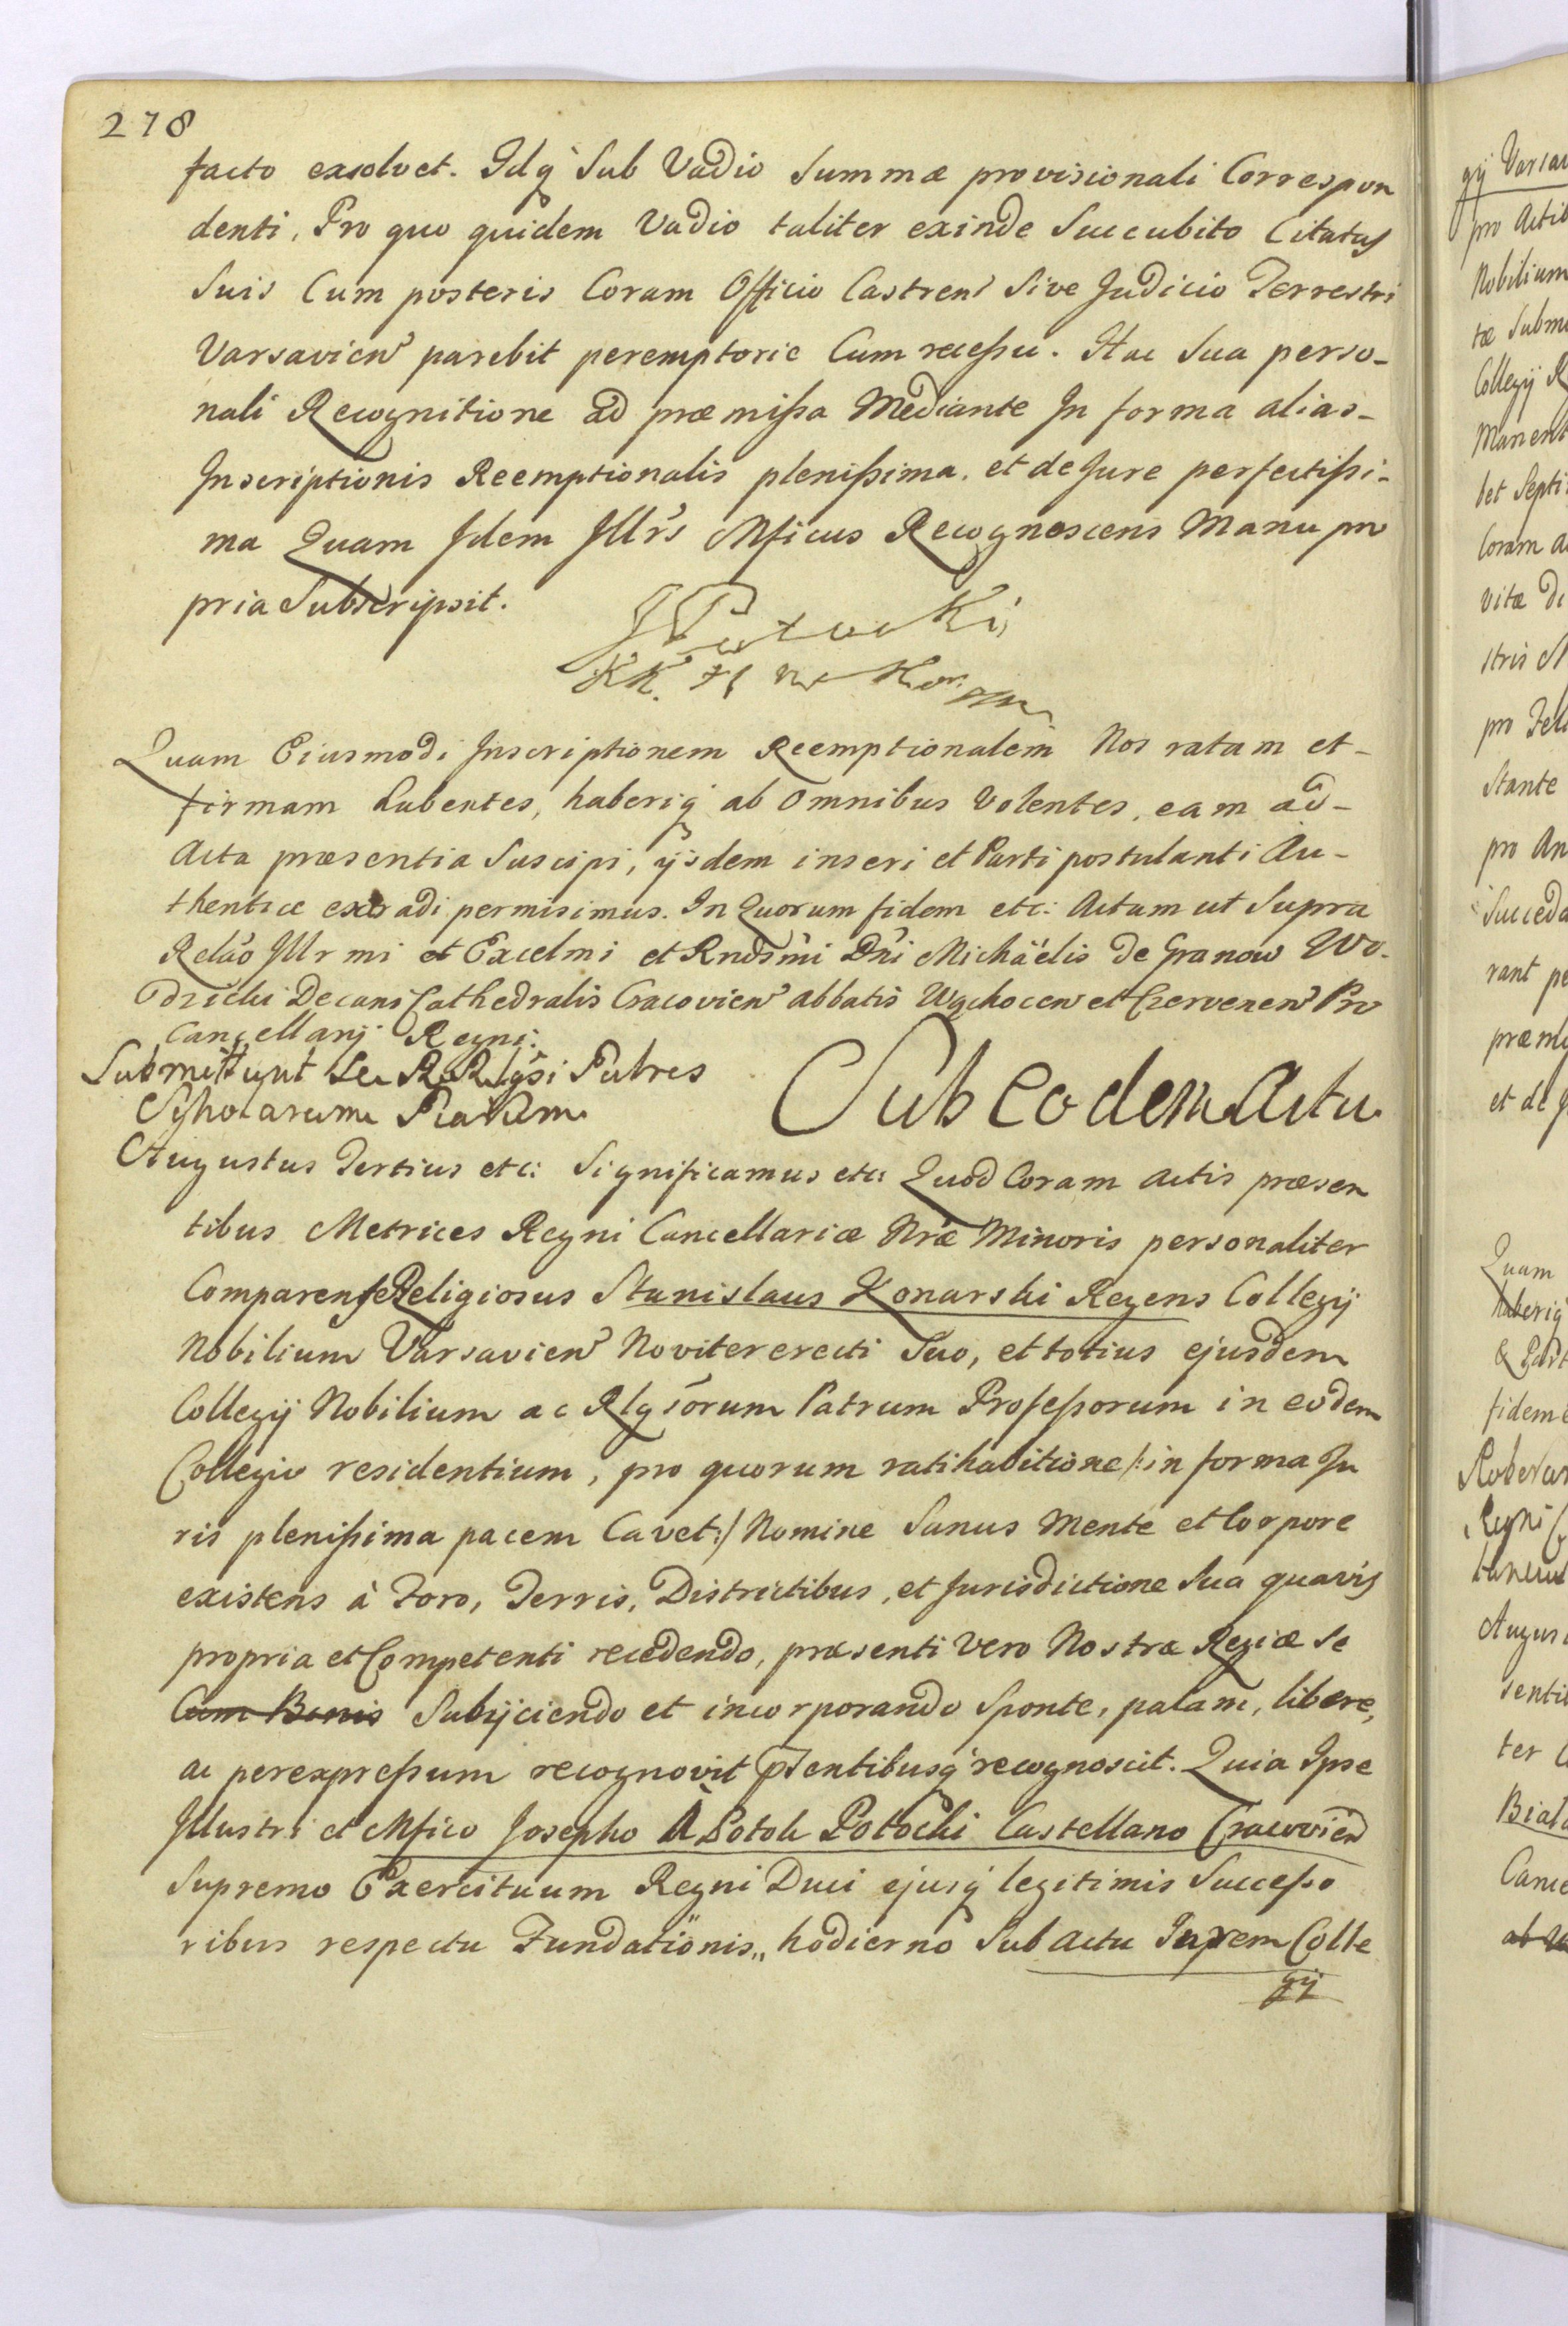 278
facto exsolvet. Idq̀ Sub Vadio Summæ provisionali Correspon
denti, Pro quo quidem Vadio taliter exinde Succubito Citatus
Suis Cum posteris Coram Officio Castren̄ Sive Judicio Terrestri
Varsavien̄ parebit peremptorie Cum recessu. Hac Sua perso-
nali Recognitione ad præmissa Mediante In forma alias-
Inscriptionis Reemptionalis plenissima. et de Jure perfectissi-
ma Quam Idem Illr̃s Mficus Recognoscens Manu pro
pria Subscripsit.
JPotocki
KK. H W Kor
Quam Eiusmodi Inscriptionem Reemptionalem Nos ratam et-
firmam habentes, haberiq̀ ab Omnibus Volentes, eam ad-
Acta præsentia Suscipi, ijsdem inseri et Parti postulanti Au-
thentice extradi permisimus. In Quorum fidem etc: Actum ut Supra
Relão Illr mi et Excelmi et Rndsm̃i Dñi Michaëlis de Granow Wo-
dzicki Decani Cathedralis Cracovien̄ abbatis Wąchocen̄ et Czervenen̄ Pro
Cancellarij Regni:
Submittunt Se RR. Rlgs̃i Patres
Scholarum Piarum
Sub eodem Actu
Augustus Tertius etc: Significamus etc: Quod Coram actis præsen
tibus Metrices Regni Cancellariæ Nr̃æ Minoris personaliter
Comparens Religiosus Stanislaus Konarski Regens Collegij
Nobilium Varsavien̄ Noviter erecti Suo, et totius ejusdem
Collegij Nobilium ac Rlgs̃orum Patrum Professorum in eodem
Collegio residentium, pro quorum ratihabitione /:in forma Ju
ris plenissima pacem Cavet:/ Nomine Sanus Mente et Corpore
existens à Foro, Terris, Districtibus, et Jurisdictione Sua quavis
propria et Competenti recedendo, præsenti Vero Nostræ Regiæ Se
Cum Bonis Subijciendo et incorporando Sponte, palam, libere,
ac perexpressum recognovit p̃sentibusq̀ recognoscit. Quia Ipse
Illustri et Mfico Josepho à Potok Potocki Castellano Cracovien̄
Supremo Exercituum Regni Duci ejusq̀ legitimis Successo
ribus respectu Fundationis„ hodierno Sub actu Colle
gij